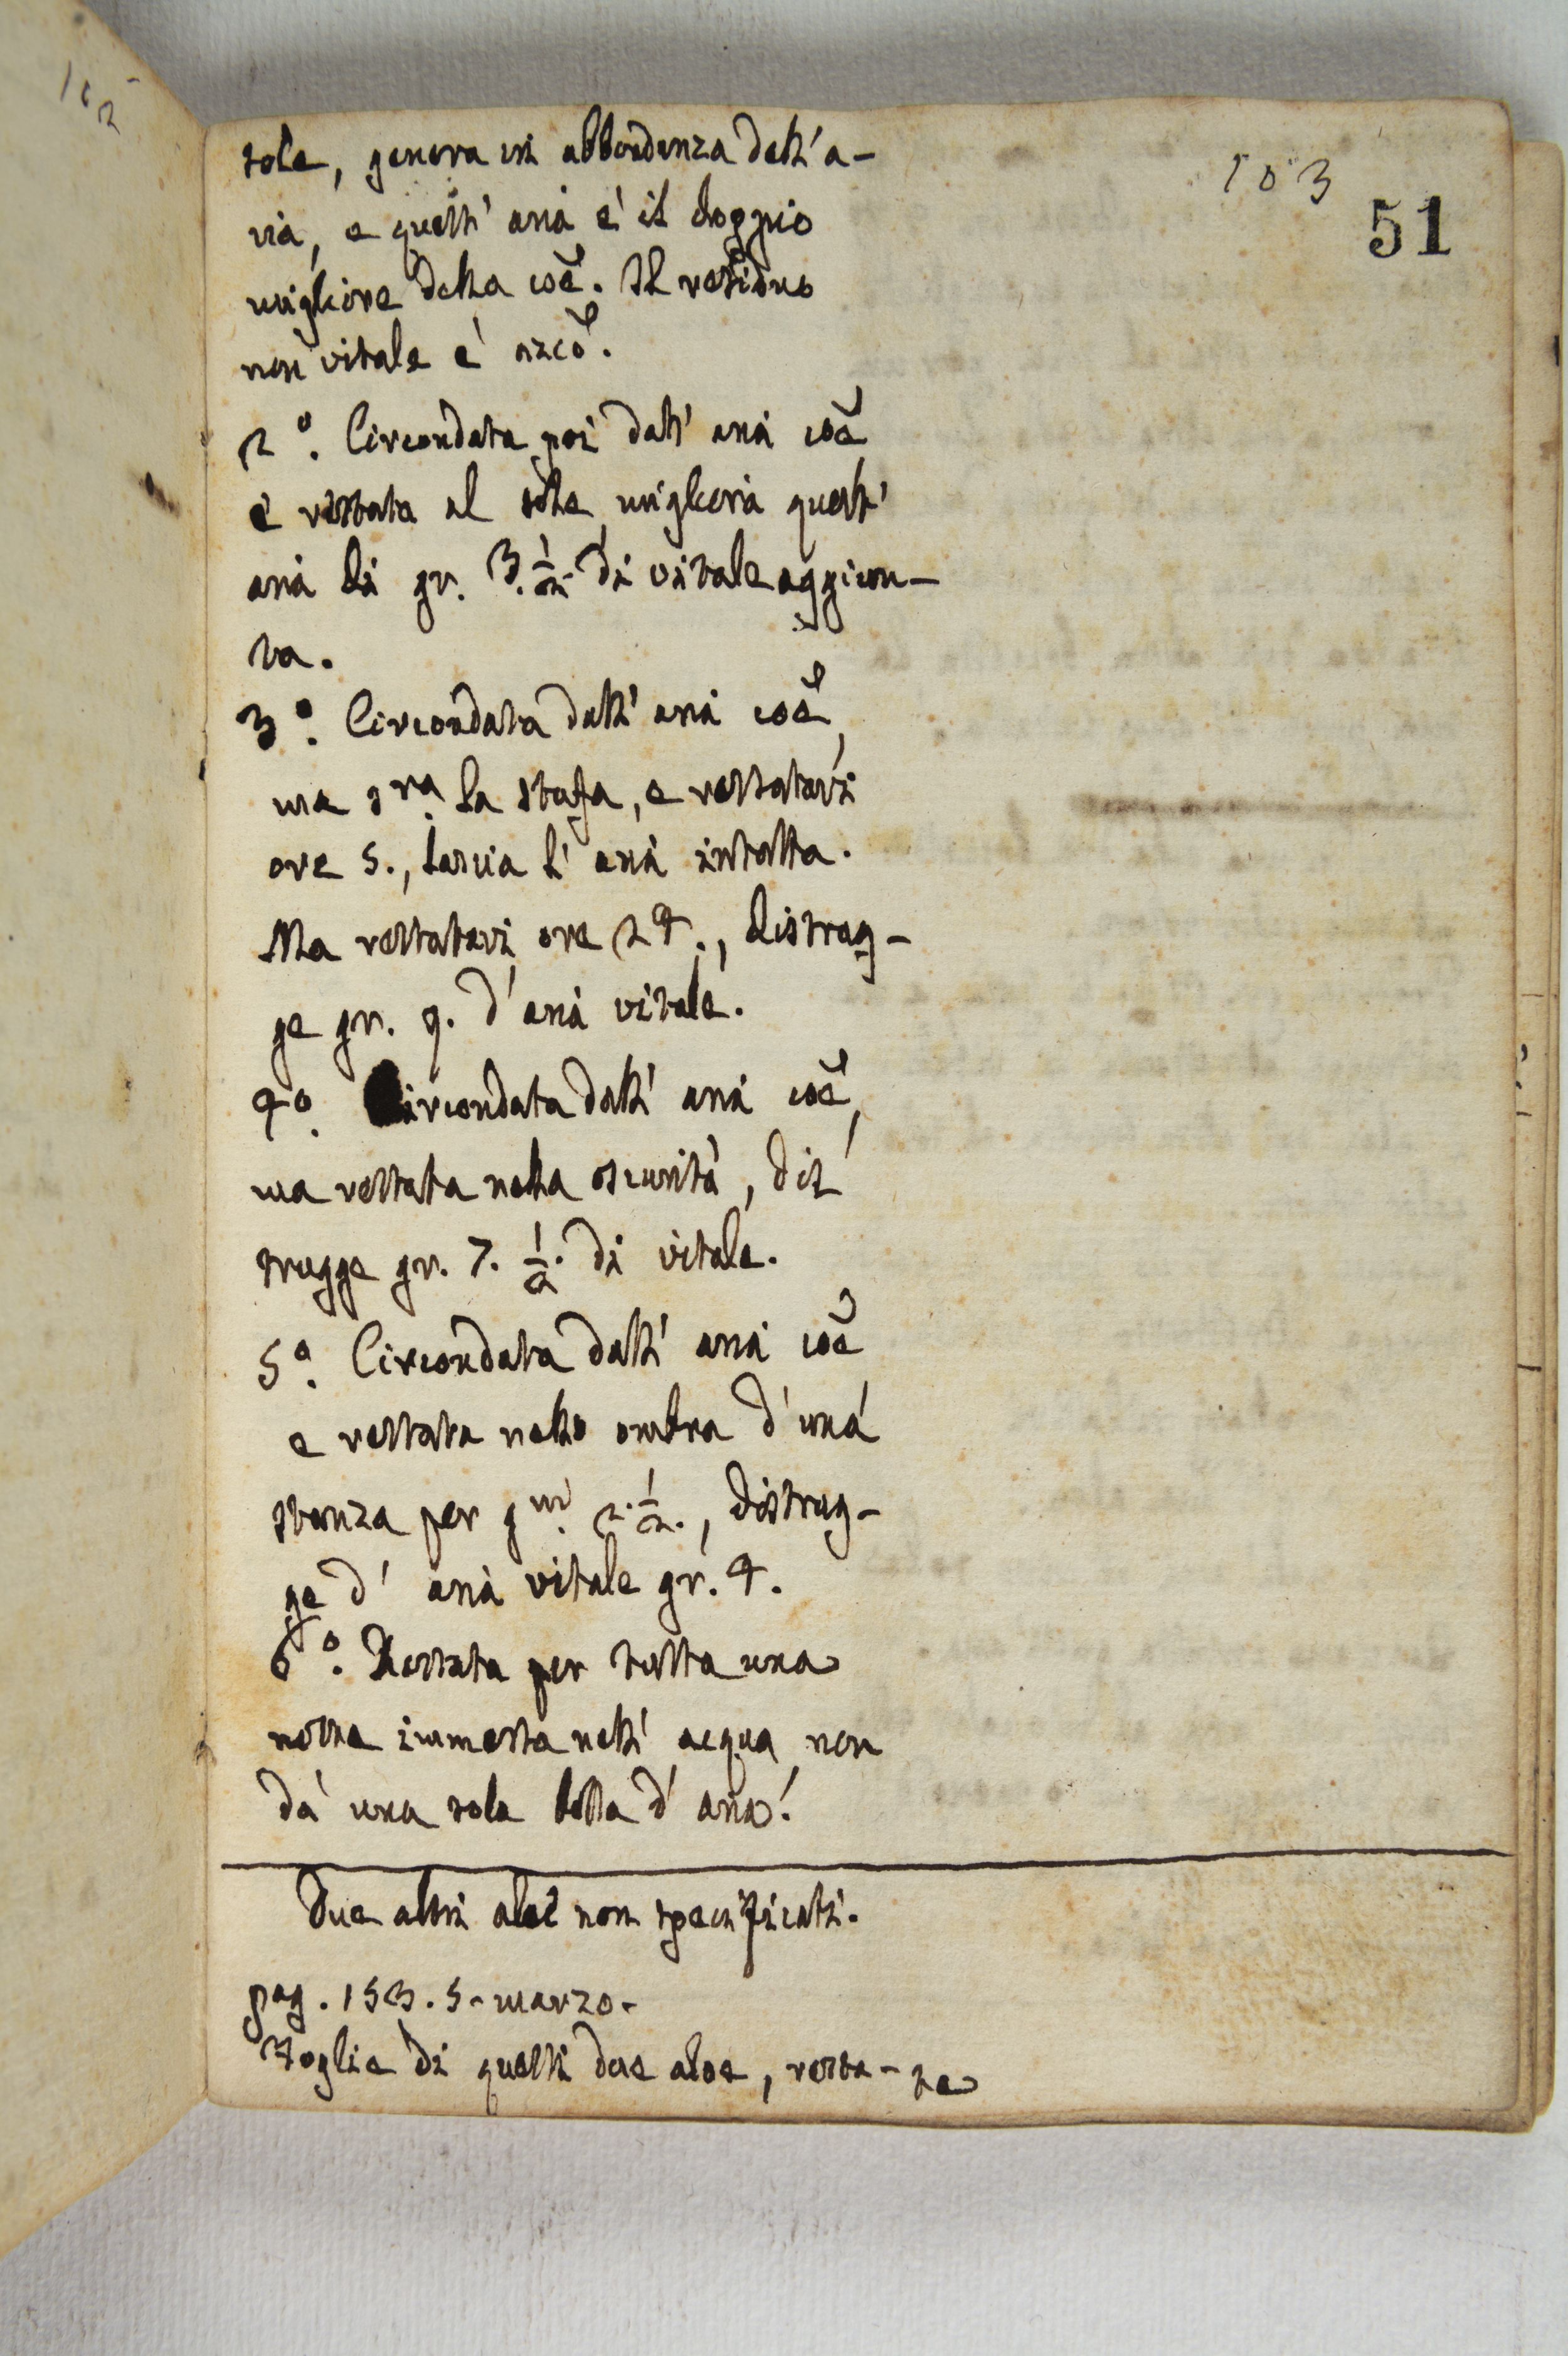 102
103
51
sole, genera in abbondanza dell'a-
ria, e quest' aria è il doppio
migliore della coe. Il residuo
non vitale è azco.
2º. Circondata poi dall' aria coe
e restata al sole migliora quest'
aria di gr. 3. 1/2. di vitale aggiun-
ta.
3º. Circondata dall' aria coe,
ma sra la stufa, e restatavi
ore 5., lascia l' aria intatta.
Ma restatavi ore 24., distrug-
ge gr. 9. d'aria vitale.
4º. Circondata dall' aria coe,
ma restata nella oscurità, dis
trugge gr. 7. 1/2. di vitale.
5º. Circondata dall' aria coe
e restata nello ombra d'una
stanza per gni. 2. 1/2., distrug-
ge d' aria vitale gr. 4.
6º. Restata per tutta una
notte immersa nell' acqua non
dà una sola bolla d' aria.
Due altri aloe non specificati.
pag. 153. 5. marzo.
Foglie di questi due aloe, resta-te